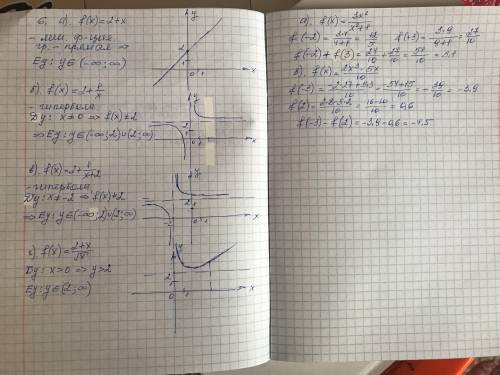 6. а). f(x)=2+x
- лин. ф-ция.
гр. - прямая ⇒
Ey: y∈(-∞;∞)
y
2
0 1 x
б). f(x)=2+1/x
- гипербола
Dy: x≠0 ⇒ f(x)≠2
⇒ Ey: y∈(-∞;2)∪(2;∞)
y
2
0 1 x
в). f(x)=2+1/(x+2)
- гипербола
Dy: x≠-2 ⇒ f(x)≠2
⇒ Ey: y∈(-∞;2)∪(2;∞)
y
2
0 1 x
г). f(x)=(2+x)/√x
Dy: x>0 ⇒ y>2
Ey: y∈(2;∞)
y
1
0 1 x
а). f(x)=3x²/(x²+1)
f(-2)=3·4/(4+1)=12/5 f(+3)=3·9/(9+1)=27/10
f(-2)+f(3)=24/10+27/10=51/10=5,1
б). f(x)=(2x³-5x)/10
f(-3)=(-2·27+5·3)/10=(-54+15)/10=-39/10=-3,9
f(2)=(2·8-5·2)/10=(16-10)/10=0,6
f(-3)-f(2)=-3,9-0,6=-4,5